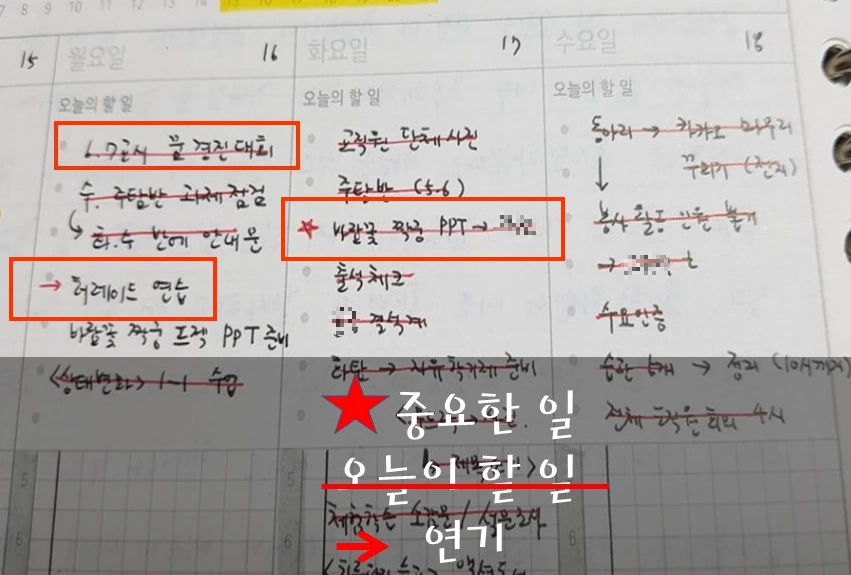 7 8 9 10 11 12 13 14 15 16 17 18 19 20 21 22 23 24
15 월요일 16
오늘의 할 일
6.7교시 꿈 경진대회
수. 주탐반 과제 점검
화.수 반에 안내문
→ 퍼레이드 연습
바람꽃 짝궁 프젝 PPT 준비
<상태변화> 1-1 수업
화요일 17
오늘의 할 일
교직원 단체사진
주탐반 (5.6)
★ 바람꽃 짝궁 PPT →
출석체크
결석계
→ 자유학기제 준비
체험학습 / 설문조사
수요일 18
오늘의 할 일
동아리 → 카카오 마무리
꾸리기 (전지)
↓
봉사 활동 인원 뽑기
→
수요인증
습관 → 정리 (10시까지)
전체 교직원 회의 4시
★ 중요한 일
오늘이 할 일
→ 연기
5
6
5
6